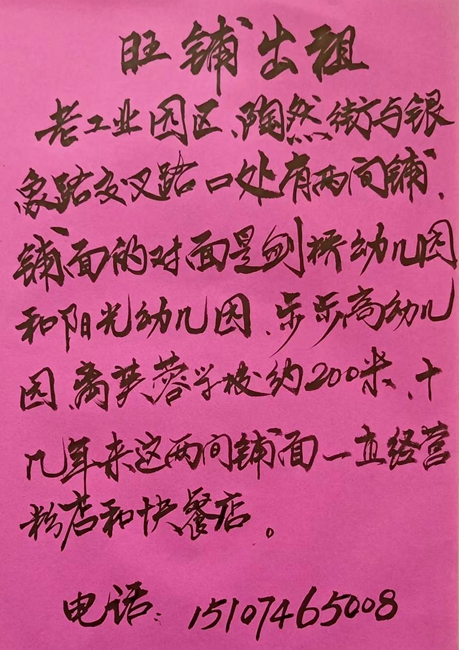 旺铺出租
老工业园区、陶然街与银
象路交叉路口处有两间铺、
铺面的对面是剑桥幼儿园
和阳光幼儿园、步步高幼儿
园、离芙蓉学校约200米、十
几年来这两间铺面一直经营
粉店和快餐店。
电话：15107465008